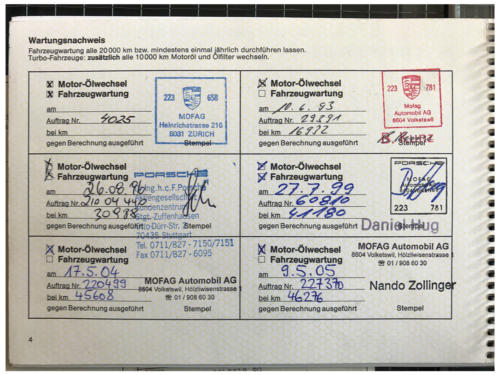 Wartungsnachweis
Fahrzeugwartung alle 20 000 km bzw. mindestens einmal jährlich durchführen lassen.
Turbo-Fahrzeuge: zusätzlich alle 10 000 km Motoröl und Ölfilter wechseln.
Motor-Ölwechsel
Fahrzeugwartung
am
Auftrag Nr. 4025
bei km
gegen Berechnung ausgeführt Stempel
223 658
MOFAG
Heinrichstrasse 216
8031 ZÜRICH
Motor-Ölwechsel
Fahrzeugwartung
am 10.6.93
Auftrag Nr. 29291
bei km 16922
gegen Berechnung ausgeführt Stempel
223 781
Mofag
Automobil AG
8604 Volketswil
Motor-Ölwechsel
Fahrzeugwartung
am 26.08.96
Auftrag Nr. 210 04 442
bei km 30988
gegen Berechnung ausgeführt Stempel
PORSCHE
Dr.Ing.h.c.F.Porsche
Kundenzentrum
Stgt.-Zuffenhausen
Otto-Dürr-Str.
70435 Stuttgart
Tel. 0711/827-7150/7151
Fax 0711/827-6095
Motor-Ölwechsel
Fahrzeugwartung
am 27.7.99
Auftrag Nr. 60810
bei km 41180
gegen Berechnung ausgeführt Stempel
PORSCHE
MOFAG
223 781
Daniel Hug
Motor-Ölwechsel
Fahrzeugwartung
am 17.5.04
Auftrag Nr. 220499
bei km 45608
gegen Berechnung ausgeführt Stempel
MOFAG Automobil AG
8604 Volketswil, Hölzliwisenstrasse
☎ 01 / 908 60 30
Motor-Ölwechsel
Fahrzeugwartung
am 9.5.05
Auftrag Nr. 227370
bei km 46276
gegen Berechnung ausgeführt Stempel
MOFAG Automobil AG
8604 Volketswil, Hölzliwisenstrasse
☎ 01 / 908 60 30
Nando Zollinger
4